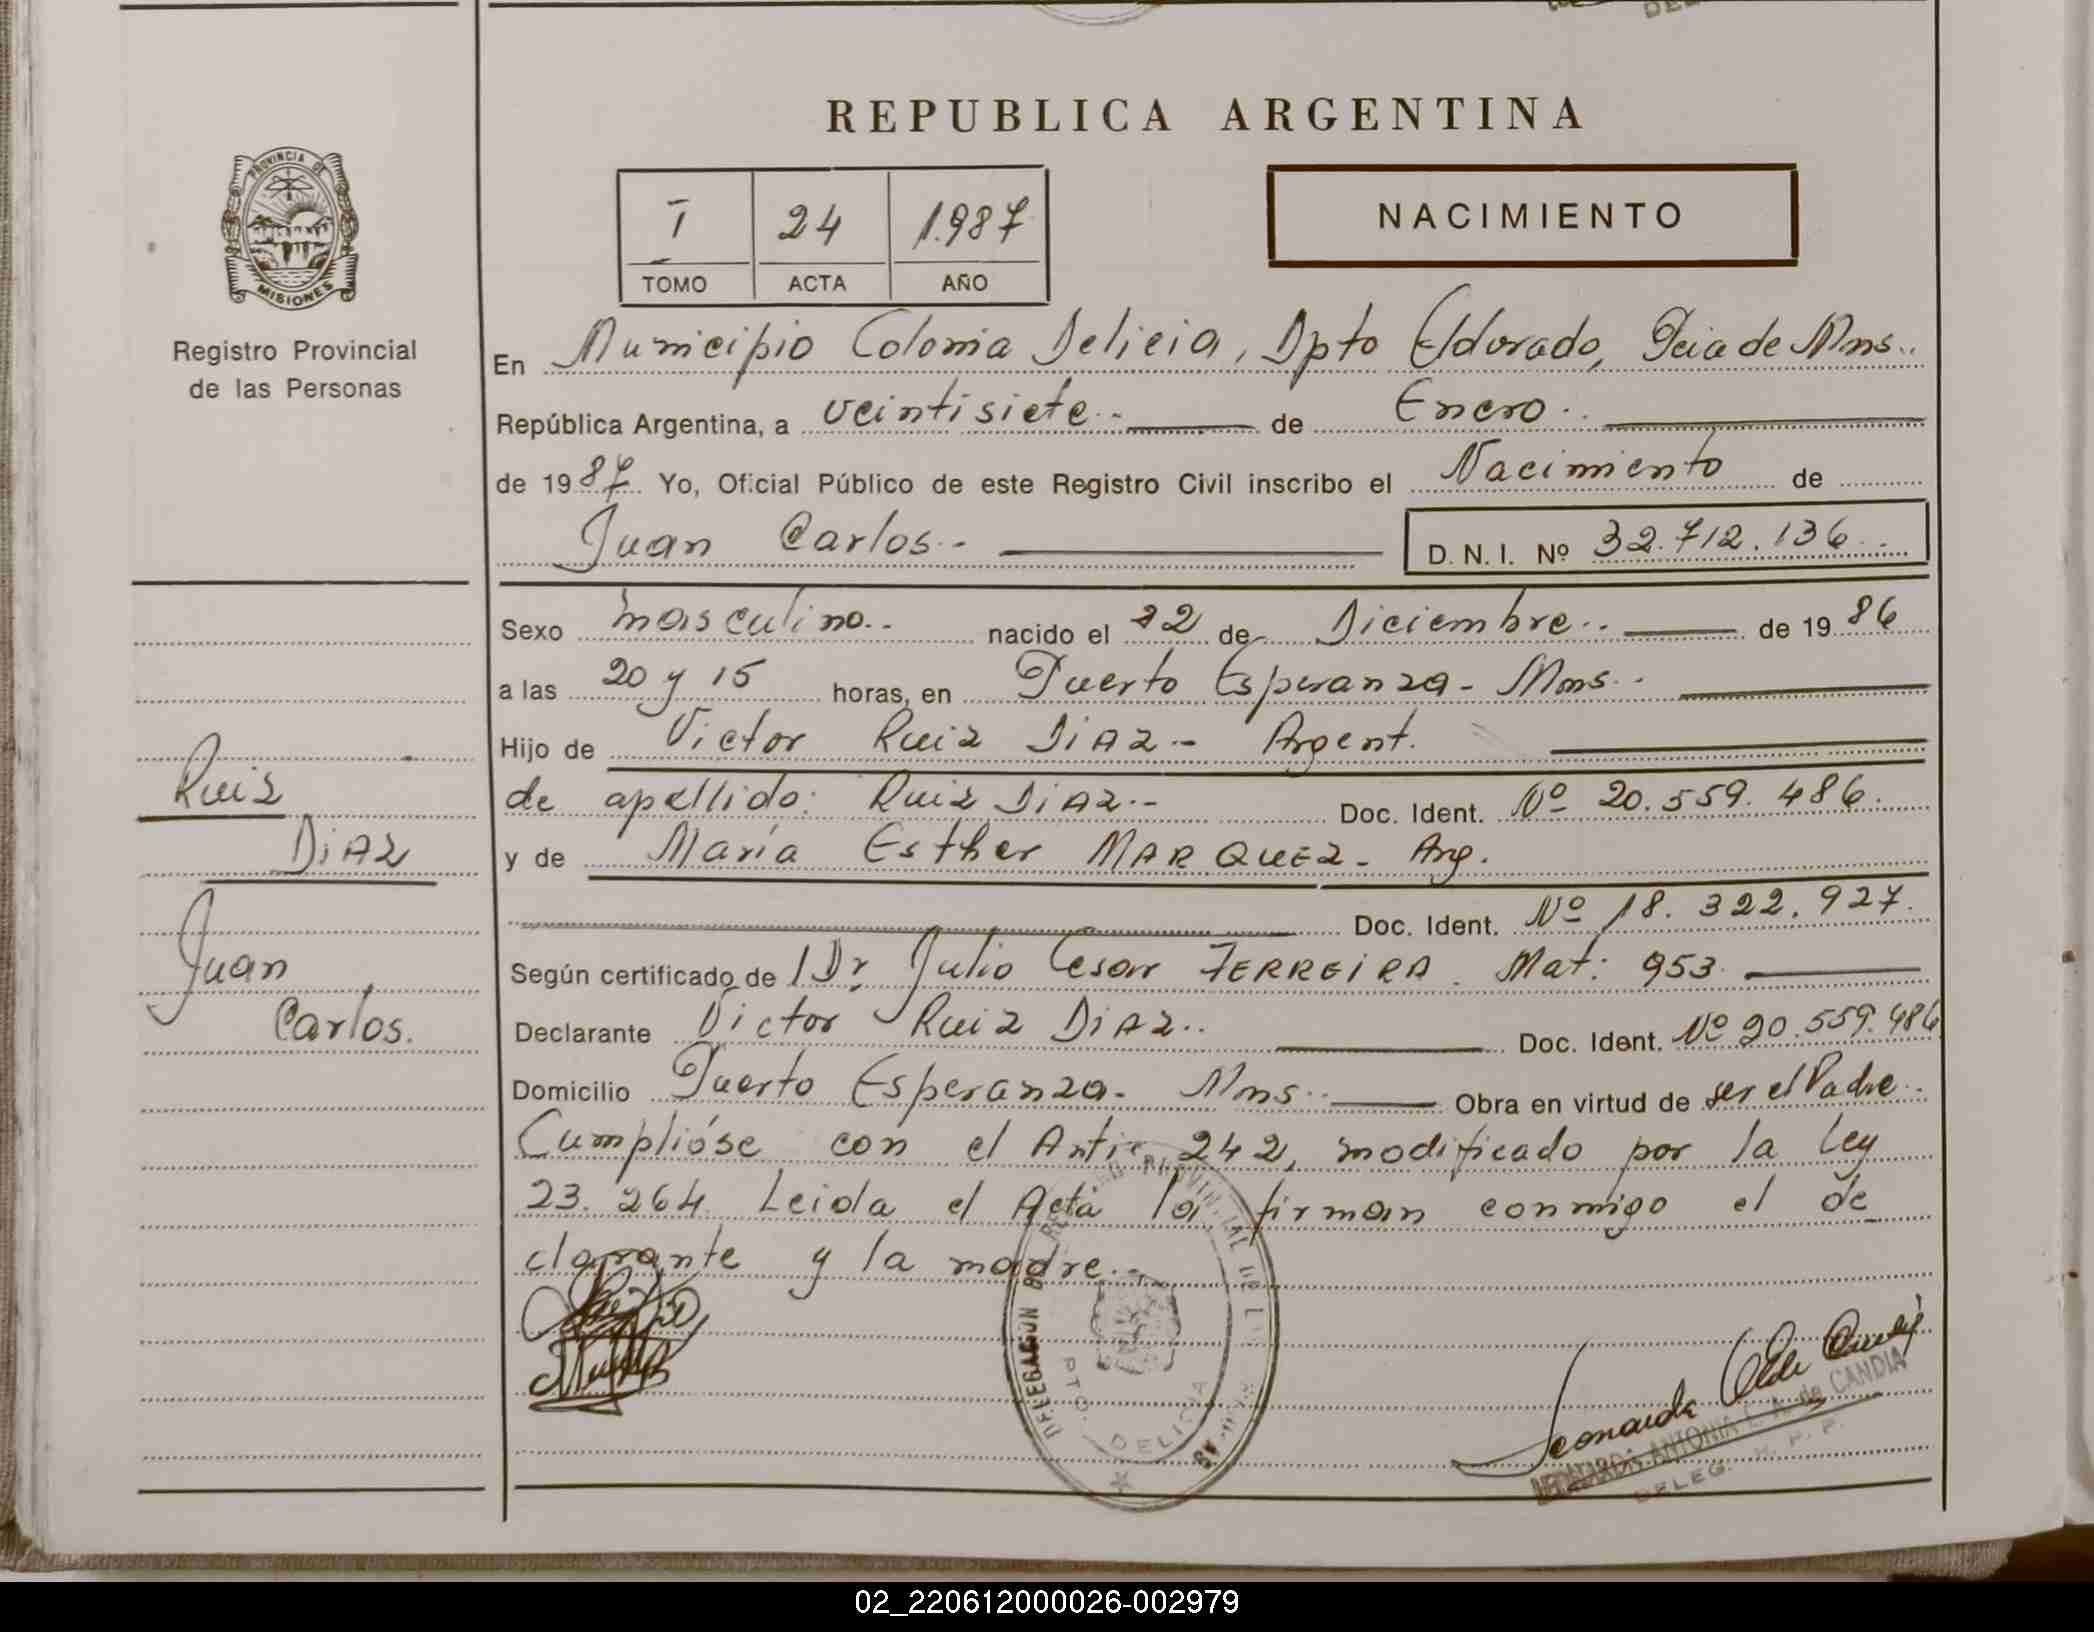 REPUBLICA ARGENTINA
PROVINCIA DE
MISIONES
Registro Provincial
de las Personas
I 24 1.987
TOMO ACTA AÑO
NACIMIENTO
En Municipio Colonia Delicia, Dpto Eldorado, Pcia de Mns..
República Argentina, a veintisiete.- de Enero..
de 1987. Yo, Oficial Público de este Registro Civil inscribo el Nacimiento de
Juan Carlos.- D. N. I. Nº 32.712.136..
Sexo masculino.. nacido el 22 de Diciembre.. de 1986
a las 20 y 15 horas, en Puerto Esperanza- Mns..
Hijo de Victor Ruiz DiAz.- Argent.
de apellido: Ruiz DiAz.- Doc. Ident. Nº 20.559.486.
y de María Esther MARQUEZ- Arg.
Doc. Ident. Nº 18.322.927.
Según certificado de Dr Julio Cesar FERREIRA. Mat: 953.
Declarante Victor Ruiz DiAz.. Doc. Ident. Nº 20.559.486
Domicilio Puerto Esperanza- Mns.. Obra en virtud de ser el Padre..
Cumplióse con el Artic 242, modificado por la Ley
23.264. Leida el Acta la firman conmigo el de
clarante y la madre.-
Ruiz
DiAz
Juan
Carlos.
PTO. DELICIA
LEONARDA ANTONIA C. A. de CANDIA
DELEG. R. P. P.
02_220612000026-002979